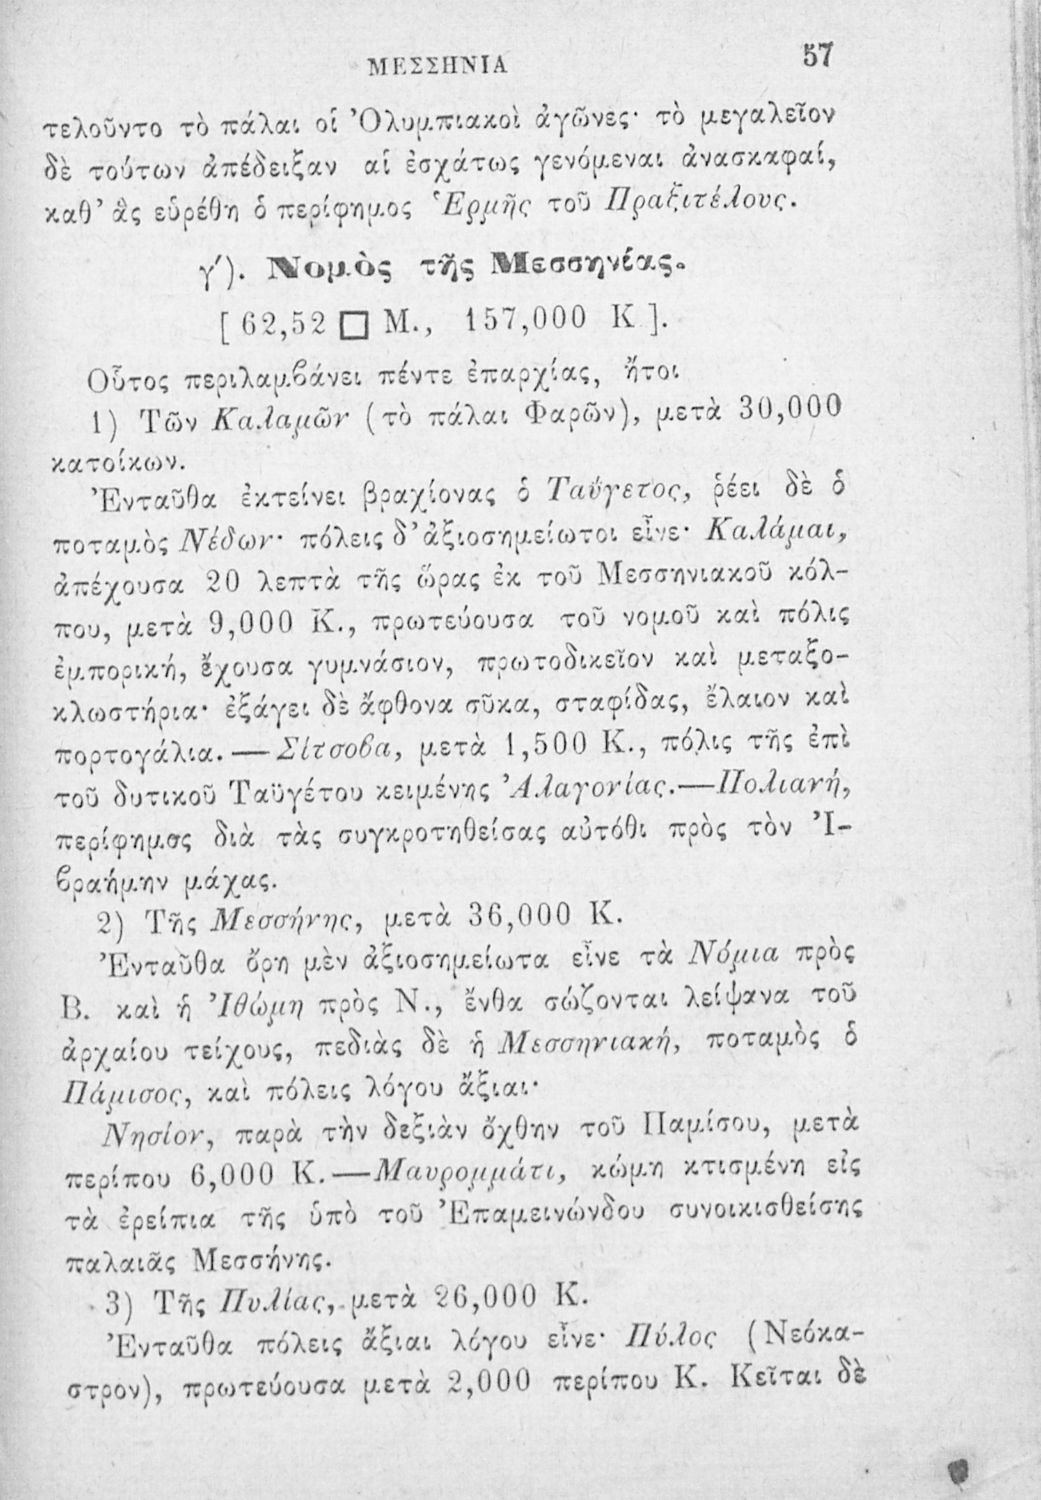 ΜΕΣΣΗΝΙΑ 57
τελοῦντο τὸ πάλαι οἱ Ὀλυμπιακοὶ ἀγῶνες· τὸ μεγαλεῖον
δὲ τούτων ἀπέδειξαν αἱ ἐσχάτως γενόμεναι ἀνασκαφαί,
καθ’ ἃς εὑρέθη ὁ περίφημος Ἑρμῆς τοῦ Πραξιτέλους.
γ′). Νομὸς τῆς Μεσσηνίας.
[ 62,52 □ Μ., 157,000 Κ ].
Οὗτος περιλαμβάνει πέντε ἐπαρχίας, ἤτοι
1) Τῶν Καλαμῶν (τὸ πάλαι Φαρῶν), μετὰ 30,000
κατοίκων.
Ἐνταῦθα ἐκτείνει βραχίονας ὁ Ταΰγετος, ῥέει δὲ ὁ
ποταμὸς Νέδων· πόλεις δ’ ἀξιοσημείωτοι εἶνε· Καλάμαι,
ἀπέχουσα 20 λεπτὰ τῆς ὥρας ἐκ τοῦ Μεσσηνιακοῦ κόλ-
που, μετὰ 9,000 Κ., πρωτεύουσα τοῦ νομοῦ καὶ πόλις
ἐμπορική, ἔχουσα γυμνάσιον, πρωτοδικεῖον καὶ μεταξο-
κλωστήρια· ἐξάγει δὲ ἄφθονα σῦκα, σταφίδας, ἔλαιον καὶ
πορτογάλια.—Σίτσοβα, μετὰ 1,500 Κ., πόλις τῆς ἐπὶ
τοῦ δυτικοῦ Ταϋγέτου κειμένης Ἀλαγονίας.—Πολιανή,
περίφημος διὰ τὰς συγκροτηθείσας αὐτόθι πρὸς τὸν Ἰ-
βραήμην μάχας.
2) Τῆς Μεσσήνης, μετὰ 36,000 Κ.
Ἐνταῦθα ὄρη μὲν ἀξιοσημείωτα εἶνε τὰ Νόμια πρὸς
Β. καὶ ἡ Ἰθώμη πρὸς Ν., ἔνθα σώζονται λείψανα τοῦ
ἀρχαίου τείχους, πεδιὰς δὲ ἡ Μεσσηνιακή, ποταμὸς ὁ
Πάμισος, καὶ πόλεις λόγου ἄξιαι·
Νησίον, παρὰ τὴν δεξιὰν ὄχθην τοῦ Παμίσου, μετὰ
περίπου 6,000 Κ.—Μαυρομμάτι, κώμη κτισμένη εἰς
τὰ ἐρείπια τῆς ὑπὸ τοῦ Ἐπαμεινώνδου συνοικισθείσης
παλαιᾶς Μεσσήνης.
3) Τῆς Πυλίας, μετὰ 26,000 Κ.
Ἐνταῦθα πόλεις ἄξιαι λόγου εἶνε· Πύλος (Νεόκα-
στρον), πρωτεύουσα μετὰ 2,000 περίπου Κ. Κεῖται δὲ